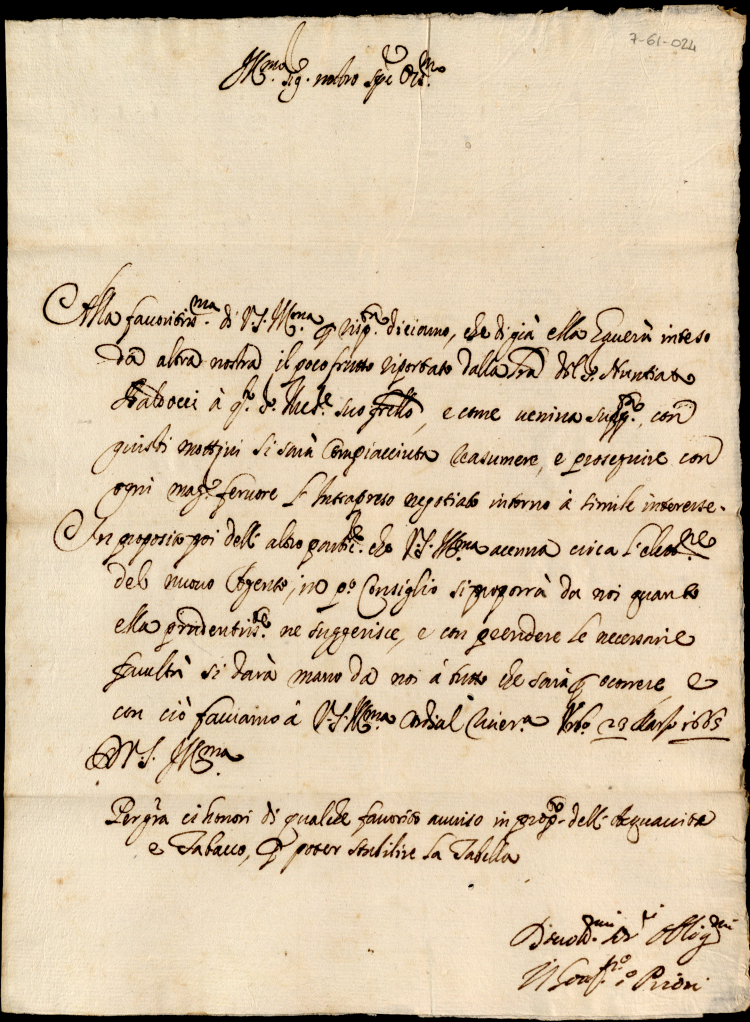 7-61-024
Ill.mo Sig. nostro Oss.mo
Alla favoritiss.ma di V.S. Ill.ma risp.ta diciamo, che di già ella haverà inteso
da altra nostra il poco frutto riportato dalla del S. Nuntiato
Baldocci à q.to S. suo fr̃ello, e come venina con
questi mottivi si sarà compiacciuta reasumere, e proseguire con
ogni mag. fervore l'Intrapreso negotiato intorno à simile interesse.
In proposito poi dell'altro che V.S. Ill.ma acenna circa l'elet.ne
del nuovo Agente, in p.o Consiglio si proporrà da noi quanto
ella prudentiss.te ne suggerisce, e con prendere le necessarie
facultà si darà mano da noi à tutto che sarà p ocorrere, e
con ciò facciamo à V.S. Ill.ma cordial river.a 23 Marzo 1665
D V.S. Ill.ma
Per gr̃a ci honori di qualche favorito avviso in prop.to dell'Aquavita
e Tabacco, p poter stabilire la Tabella
Devot.mi Ser.ri Oblig.mi
Il Conf.ro e Priori